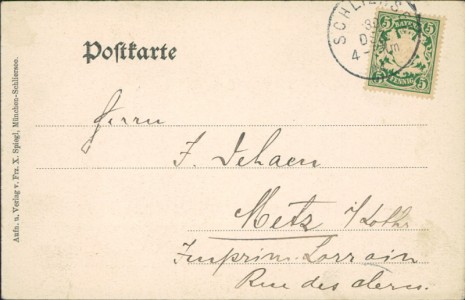 Postkarte
SCHLIERS
5 BAYERN 5
5 PFENNIG 5
Herrn
F. Dehaen
Metz i/Lothr
Imprim. Lorrain
Rue des clercs.
Aufn. u. Verlag v. Frz. X. Spiegl, München-Schliersee.